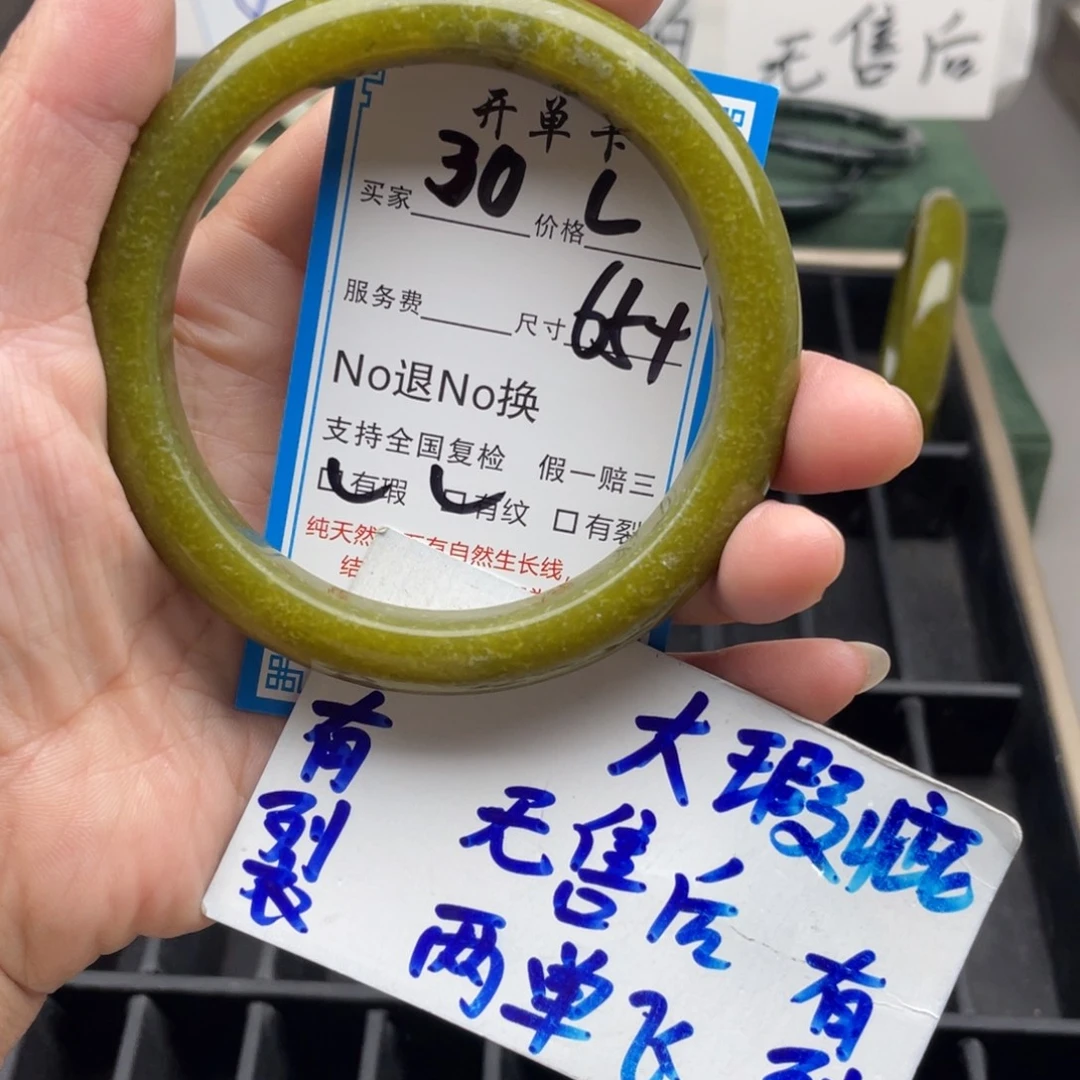 无售后
开单卡
买家 30 价格 L
服务费 尺寸 654
No退No换
支持全国复检 假一赔三
口有瑕 口有纹 口有裂
纯天然 有自然生长线,
结
有裂
大瑕疵
无售后
两单飞
有裂